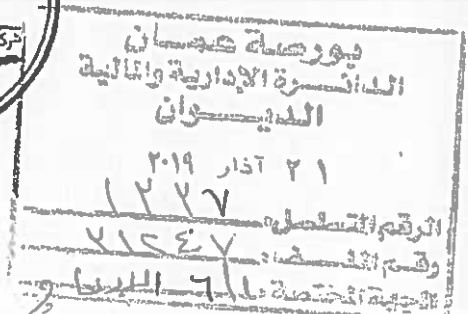 بورصة عمان
الدائرة الإدارية والمالية
الديوان
٢١ آذار ٢٠١٩
الرقم المتسلسل: ١٢٢٧
رقم الملف: ٣١٢٤٧
الجهة المختصة: